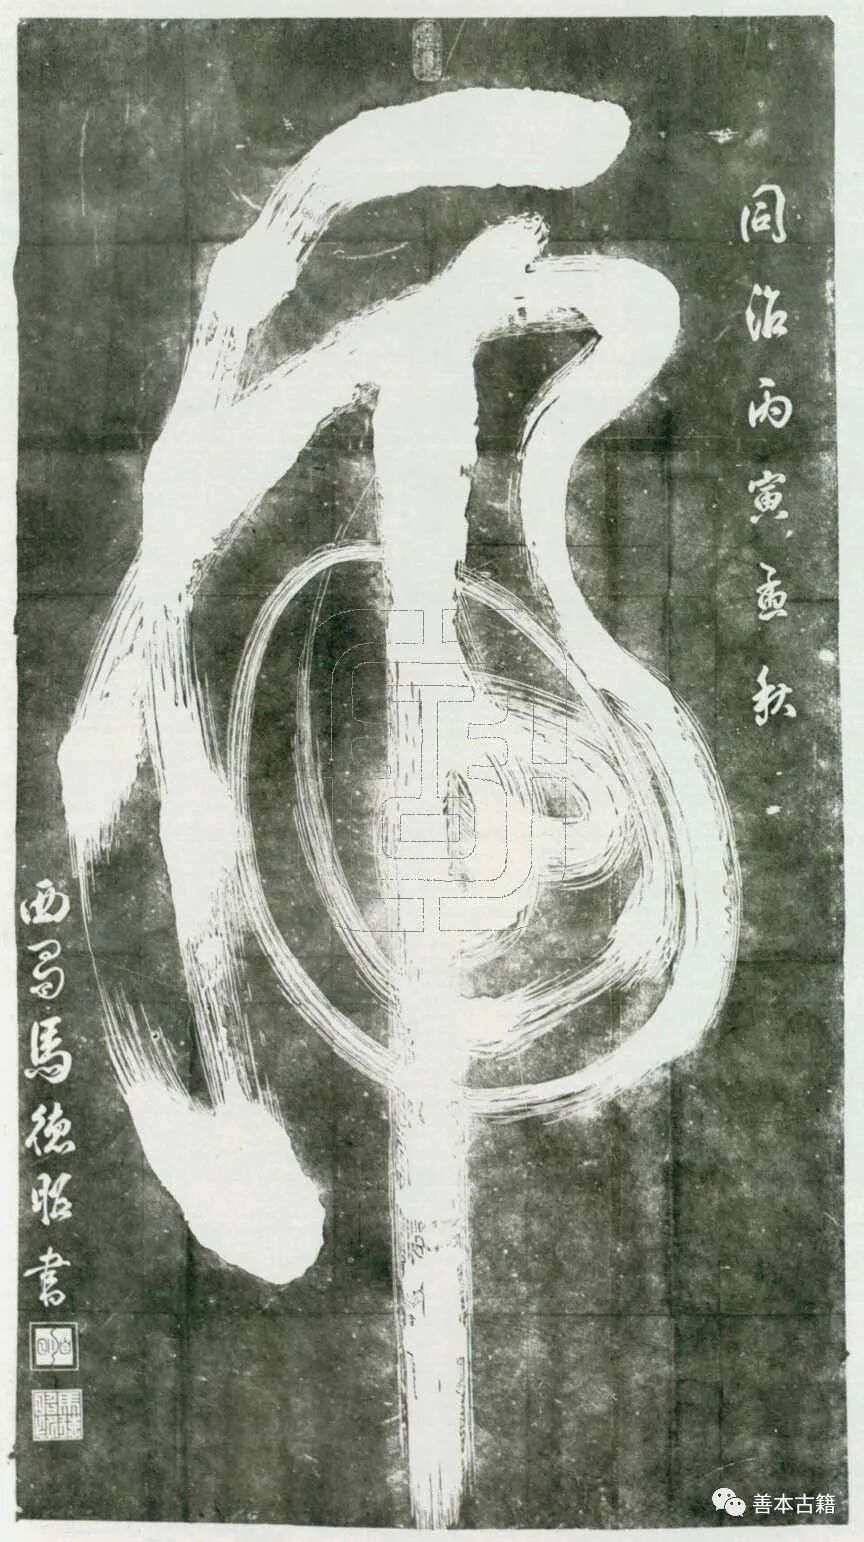 同治丙寅孟秋
佛
西蜀馬德昭書
善本古籍